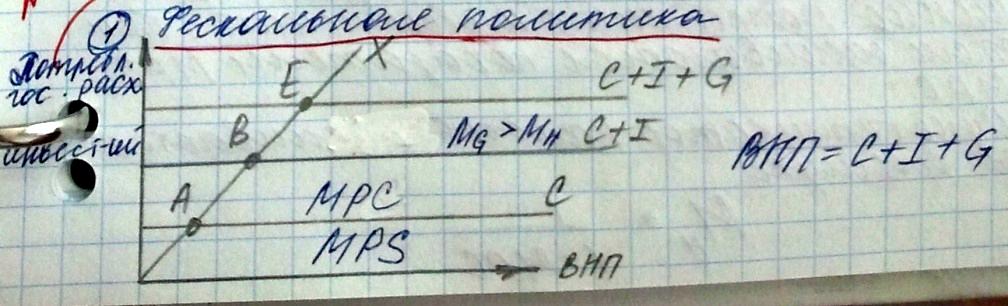 ① Фескальное политика
X
Потребл.
гос. расх
инвест-ий
E
C+I+G
B
M_G > M_H
C+I
ВНП = C+I+G
A
MPC
C
MPS
ВНП